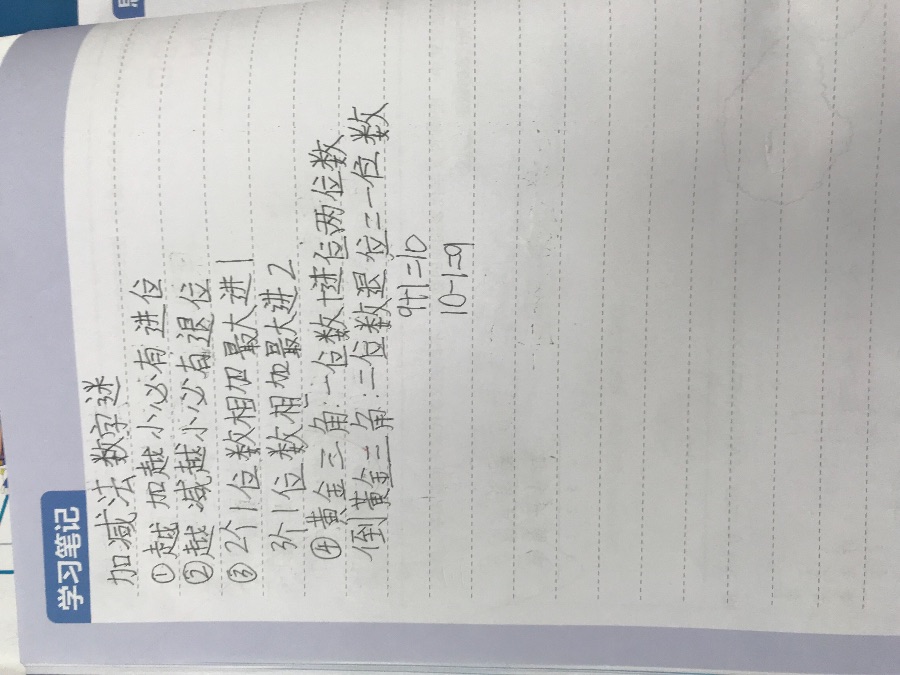 学习笔记
加减法数字迷
①越加越小必有进位
②越减越小必有退位
③2个1位数相加最大进1
3个1位数相加最大进2
④黄金三角:一位数+进位两位数
倒黄金三角:二位数退位=一位数
9+1=10
10-1=9